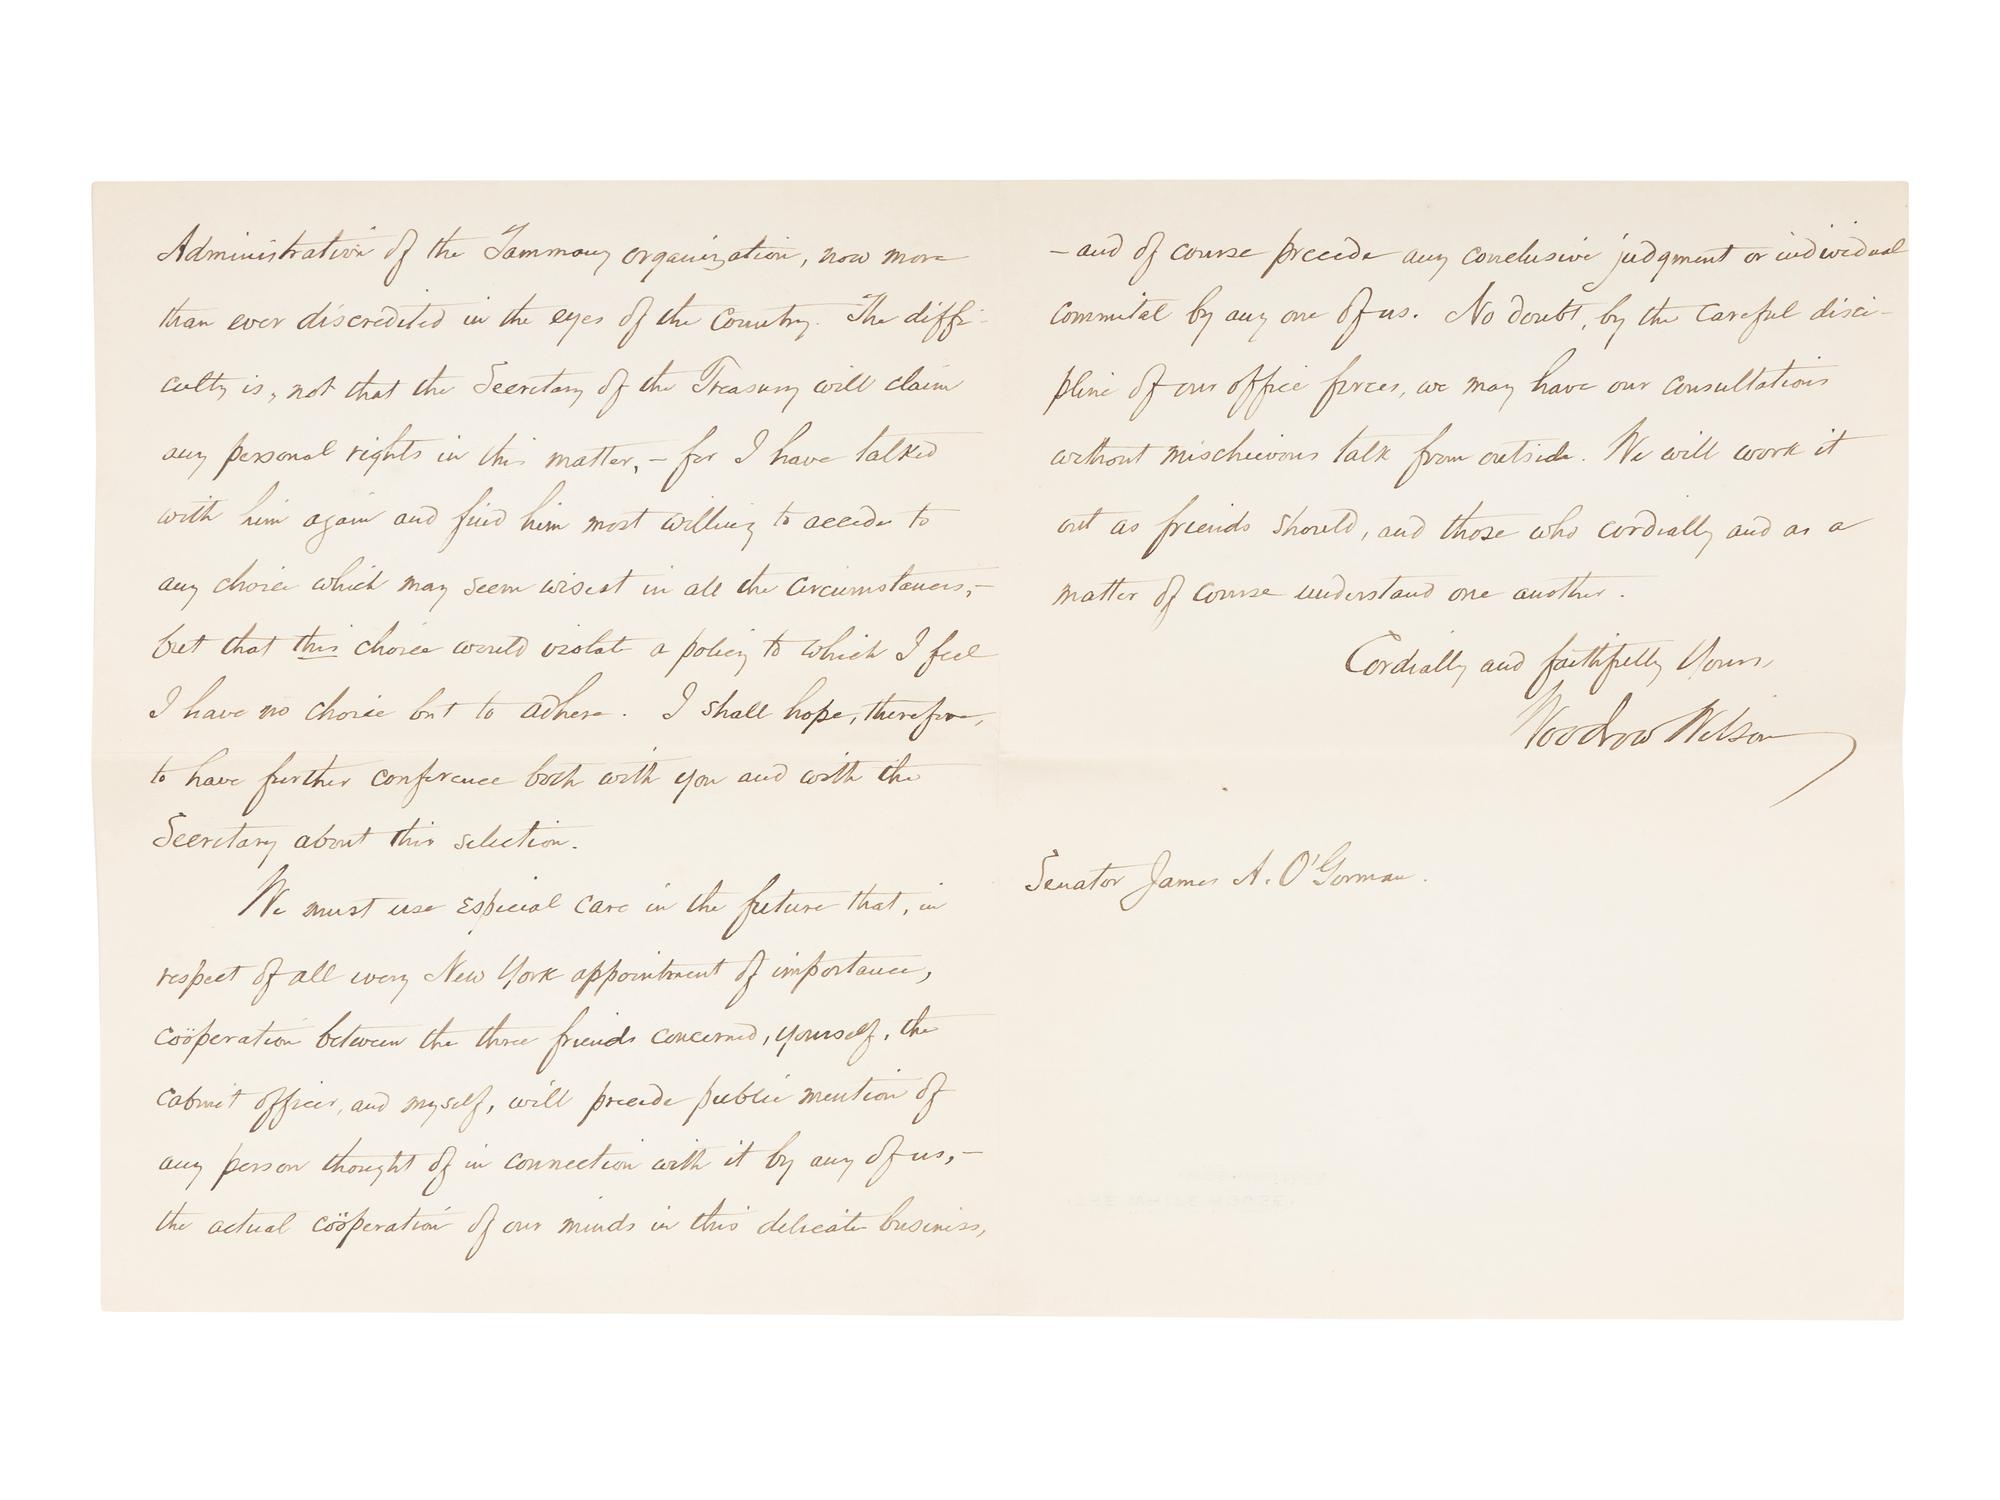 Administration of the Tammany organization, now more
than ever discredited in the eyes of the country. The diffi-
culty is, not that the Secretary of the Treasury will claim
any personal rights in this matter, – for I have talked
with him again and find him most willing to accede to
any choice which may seem wisest in all the circumstances, –
but that this choice would violate a policy to which I feel
I have no choice but to adhere. I shall hope, therefore,
to have further conference both with you and with the
Secretary about this selection.
We must use especial care in the future that, in
respect of all every New York appointment of importance,
coöperation between the three friends concerned, yourself, the
cabinet officer, and myself, will precede public mention of
any person thought of in connection with it by any of us, –
the actual coöperation of our minds in this delicate business,
– and of course precede any conclusive judgment or individual
commital by any one of us. No doubt, by the careful disci-
pline of our office forces, we may have our consultations
without mischievous talk from outside. We will work it
out as friends should, and those who cordially and as a
matter of course understand one another.
Cordially and faithfully Yours,
Woodrow Wilson
Senator James A. O'Gorman.